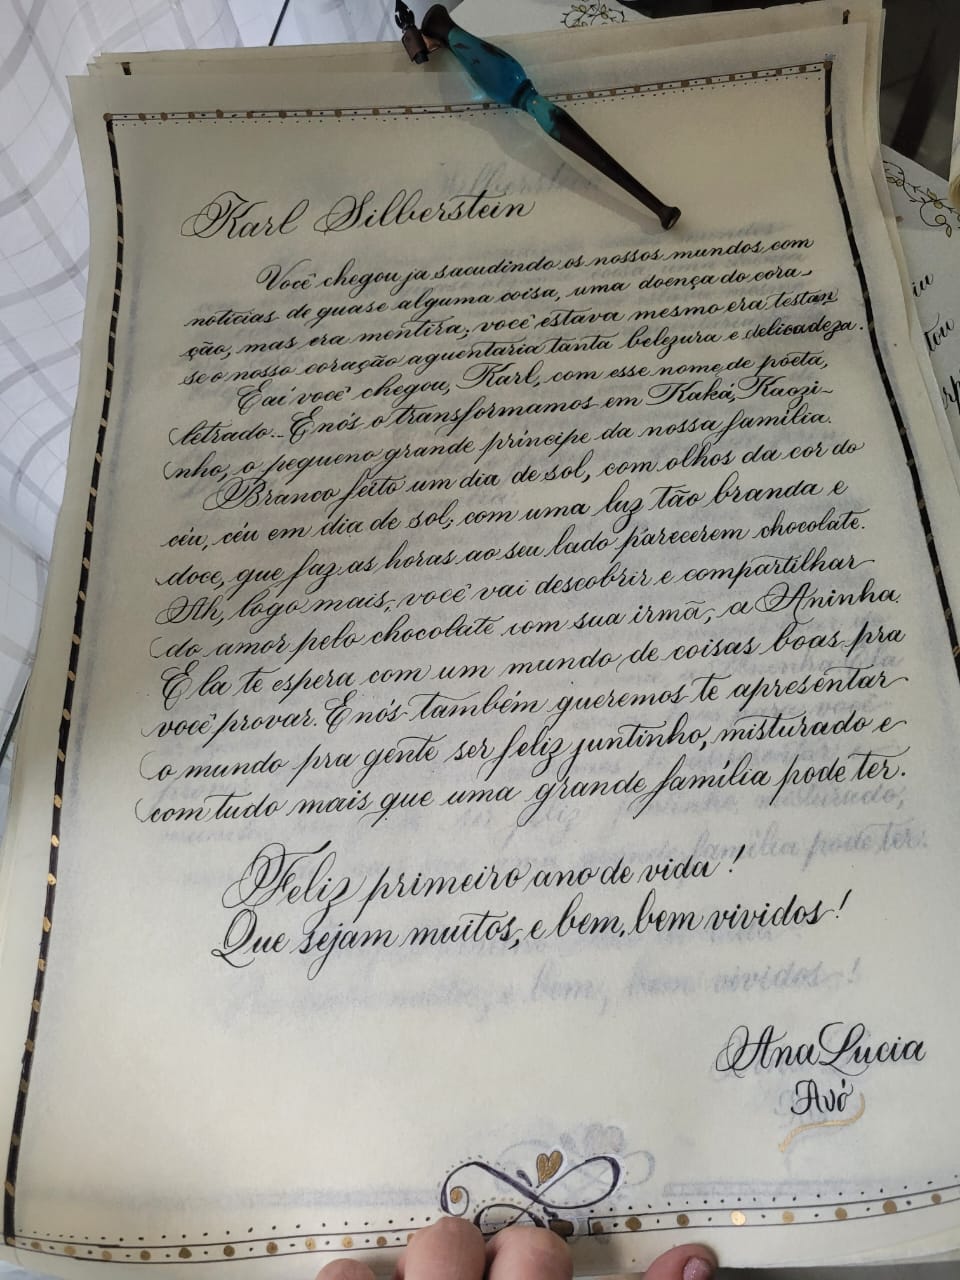 Karl Silberstein
Você chegou ja sacudindo os nossos mundos com
noticias de quase alguma coisa, uma doença do cora-
ção, mas era mentira; você estava mesmo era testan
se o nosso coração aguentaria tanta belezura e delicadeza.
E aí você chegou, Karl, com esse nome de poeta,
letrado... E nós o transformamos em Kaká, Kaozi-
nho, o pequeno grande príncipe da nossa família.
Branco feito um dia de sol, com olhos da cor do
céu, céu em dia de sol; com uma luz tão branda e
doce, que faz as horas ao seu lado parecerem chocolate.
Ah, logo mais, você vai descobrir e compartilhar
do amor pelo chocolate com sua irmã, a Aninha.
Ela te espera com um mundo de coisas boas pra
você provar. E nós também queremos te apresentar
o mundo pra gente ser feliz juntinho, misturado e
com tudo mais que uma grande família pode ter.
Feliz primeiro ano de vida!
Que sejam muitos, e bem, bem vividos!
Ana Lucia
Avó